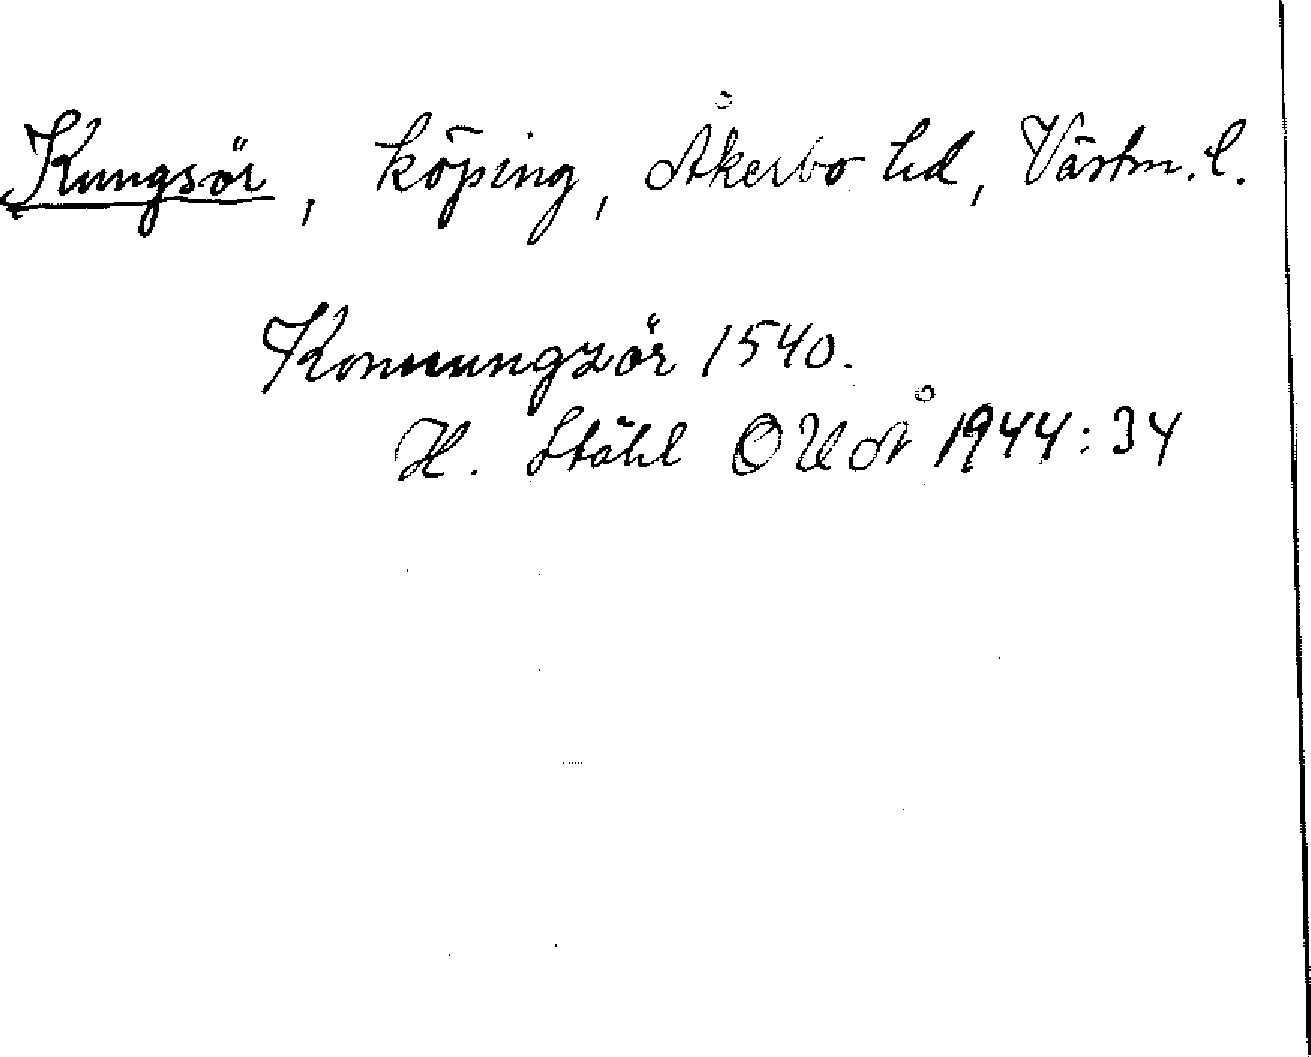 Kungsör, köping, Åkerbo hd, Västm. l.
Konnungzör 1540.
H. Ståhl OUÅ 1944:34